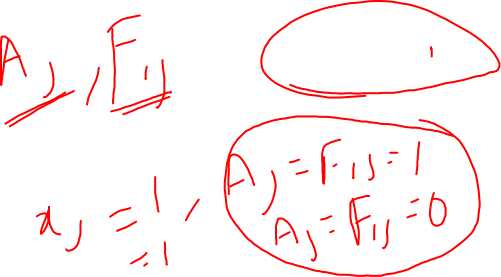 Aj, Fij
xj = 1, Aj = Fij = 1
= 1 Aj = Fij = 0